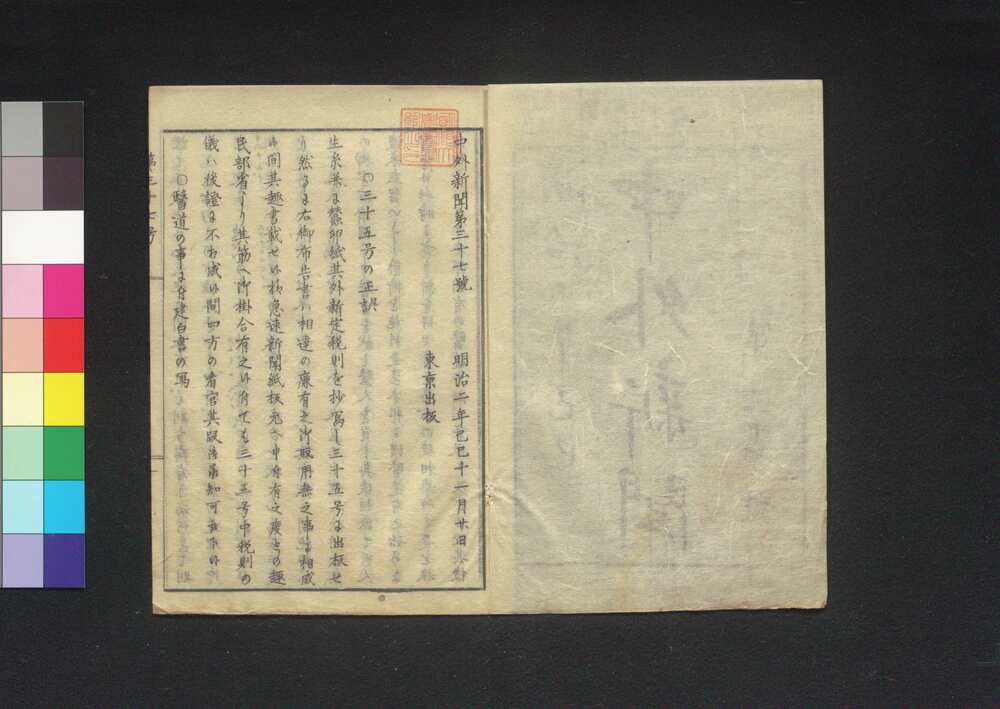 中外新聞第三十七號 明治二年己巳十一月廿日
東京出板
○三十五号の正誤
生糸并に蠶卵紙其外新定税則を抄寫し三十五号に出板せ
り然るに右御布告書ハ相違の廉有之御取用無之事に相成
候間其趣書載せ候様急速新聞紙板元へ申渡有之度との趣
民部省より其筋へ御掛合有之候付ても三十五号中税則の
儀ハ後證に不相成候間四方の看官其段御承知可被下候
○醫道の事に付建白書の寫
第三十七号